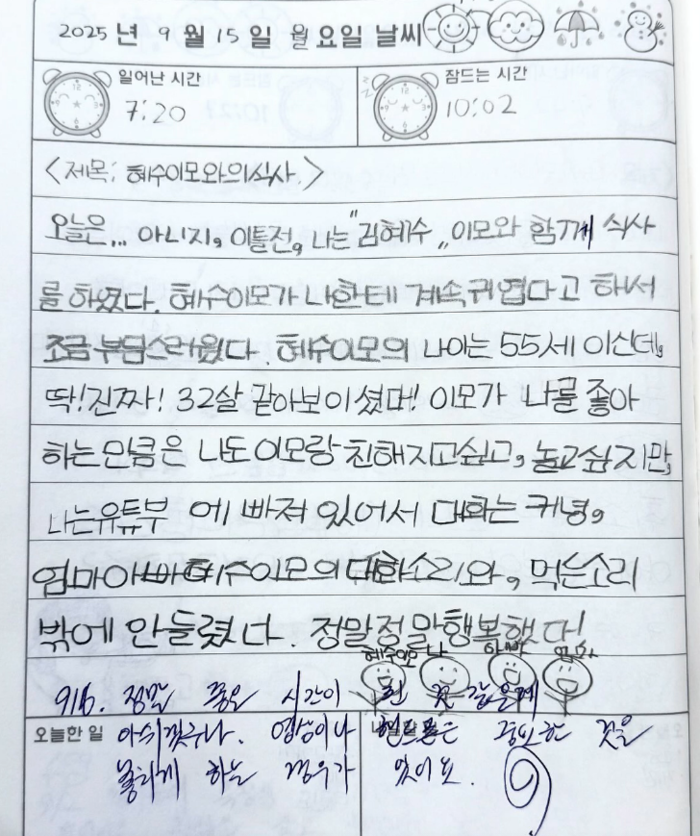 2025 년 9 월 15 일 월 요일 날씨
일어난 시간
7:20
잠드는 시간
10:02
<제목: 혜수이모와의식사.>
오늘은... 아니지, 이틀전, 나는 "김혜수" 이모와 함께 식사
를 하였다. 혜수이모가 나한테 계속 귀엽다고 하서
조금 부담스러웠다. 혜수이모의 나이는 55세 이신데,
딱!진짜! 32살 같아보이셨며! 이모가 나를 좋아
하는 만큼은 나도 이모랑 친해지고싶고, 놀고싶지만,
나는유튜부 에 빠져 있어서 대화는 커녕,
엄마아빠혜수이모의 대화소리와, 먹는소리
밖에 안들렸다. 정말정말행복했다!
혜수이모 나 아빠 엄마
9/16. 정말 좋은 시간이 된 것 같은데
오늘한 일 아쉬겠구나. 영상이나 핸드폰은 중요한 것을
놓치게 하는 경우가 있어요.